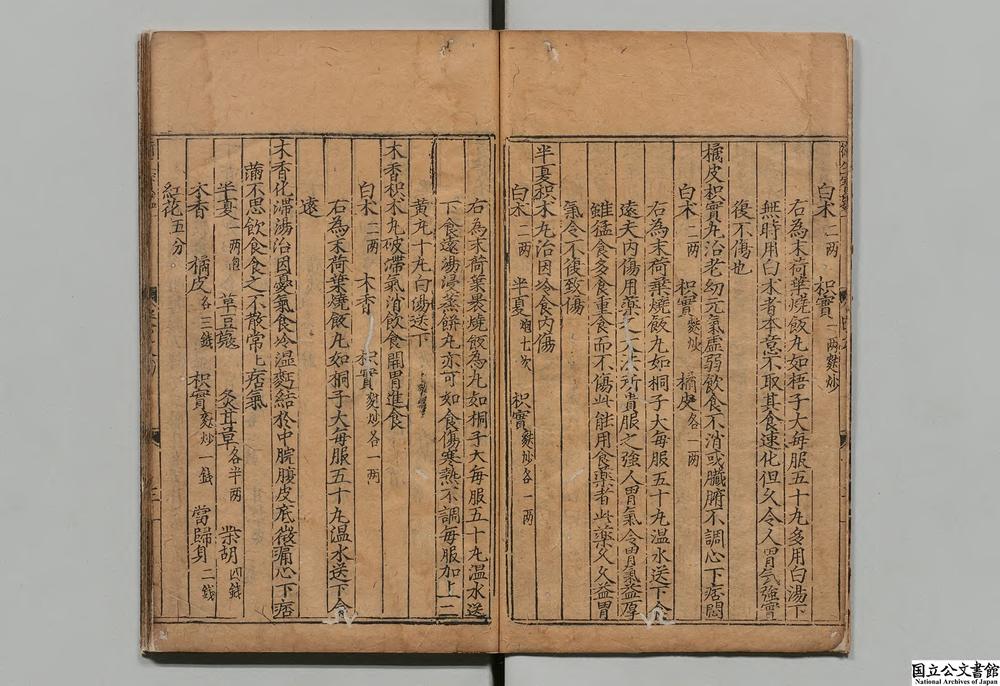 白术二兩　枳實一兩麩炒
右為末荷葉燒飯丸如梧子大每服五十丸多用白湯下
無時用白术者本意不取其食速化但久令人胃氣強實
後不傷也
橘皮枳實丸治老幼元氣虛弱飲食不消或臟腑不調心下痞悶
白术二兩　枳實麩炒　橘皮各一兩
右為末荷葉燒飯丸如桐子大每服五十丸温水送下食
遠夫內傷用藥之大法所貴服之強人胃氣令胃氣益厚
雖猛食多食重食而不傷此能用食藥者此藥久久益胃
氣令不復致傷
半夏枳术丸治因冷食內傷
白术二兩　半夏炮七次　枳實麩炒各一兩
右為末荷葉裹燒飯為丸如桐子大每服五十丸温水送
下食遠湯浸蒸餅丸亦可如食傷寒熱不調每服加上二
黃丸十丸白湯送下
木香枳术丸破滯氣消飲食開胃進食
白术二兩　木香　枳實麩炒各一兩
右為末荷葉燒飯丸如桐子大每服五十丸温水送下食
遠
木香化滯湯治因憂氣食冷湿麪結於中脘腹皮底微痛心下痞
滿不思飲食食之不散常常痞氣
半夏一兩　草豆蔻　炙甘草各半兩　柴胡四錢
木香　橘皮各三錢　枳實麩炒一錢　當歸身二錢
紅花五分
国立公文書館
National Archives of Japan